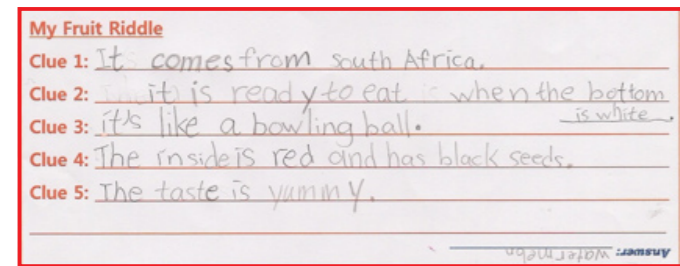 My Fruit Riddle
Clue 1: It comes from south Africa.
Clue 2: it is ready to eat when the bottom
is white.
Clue 3: it's like a bowling ball.
Clue 4: The inside is red and has black seeds.
Clue 5: The taste is yummy.
Answer: watermelon